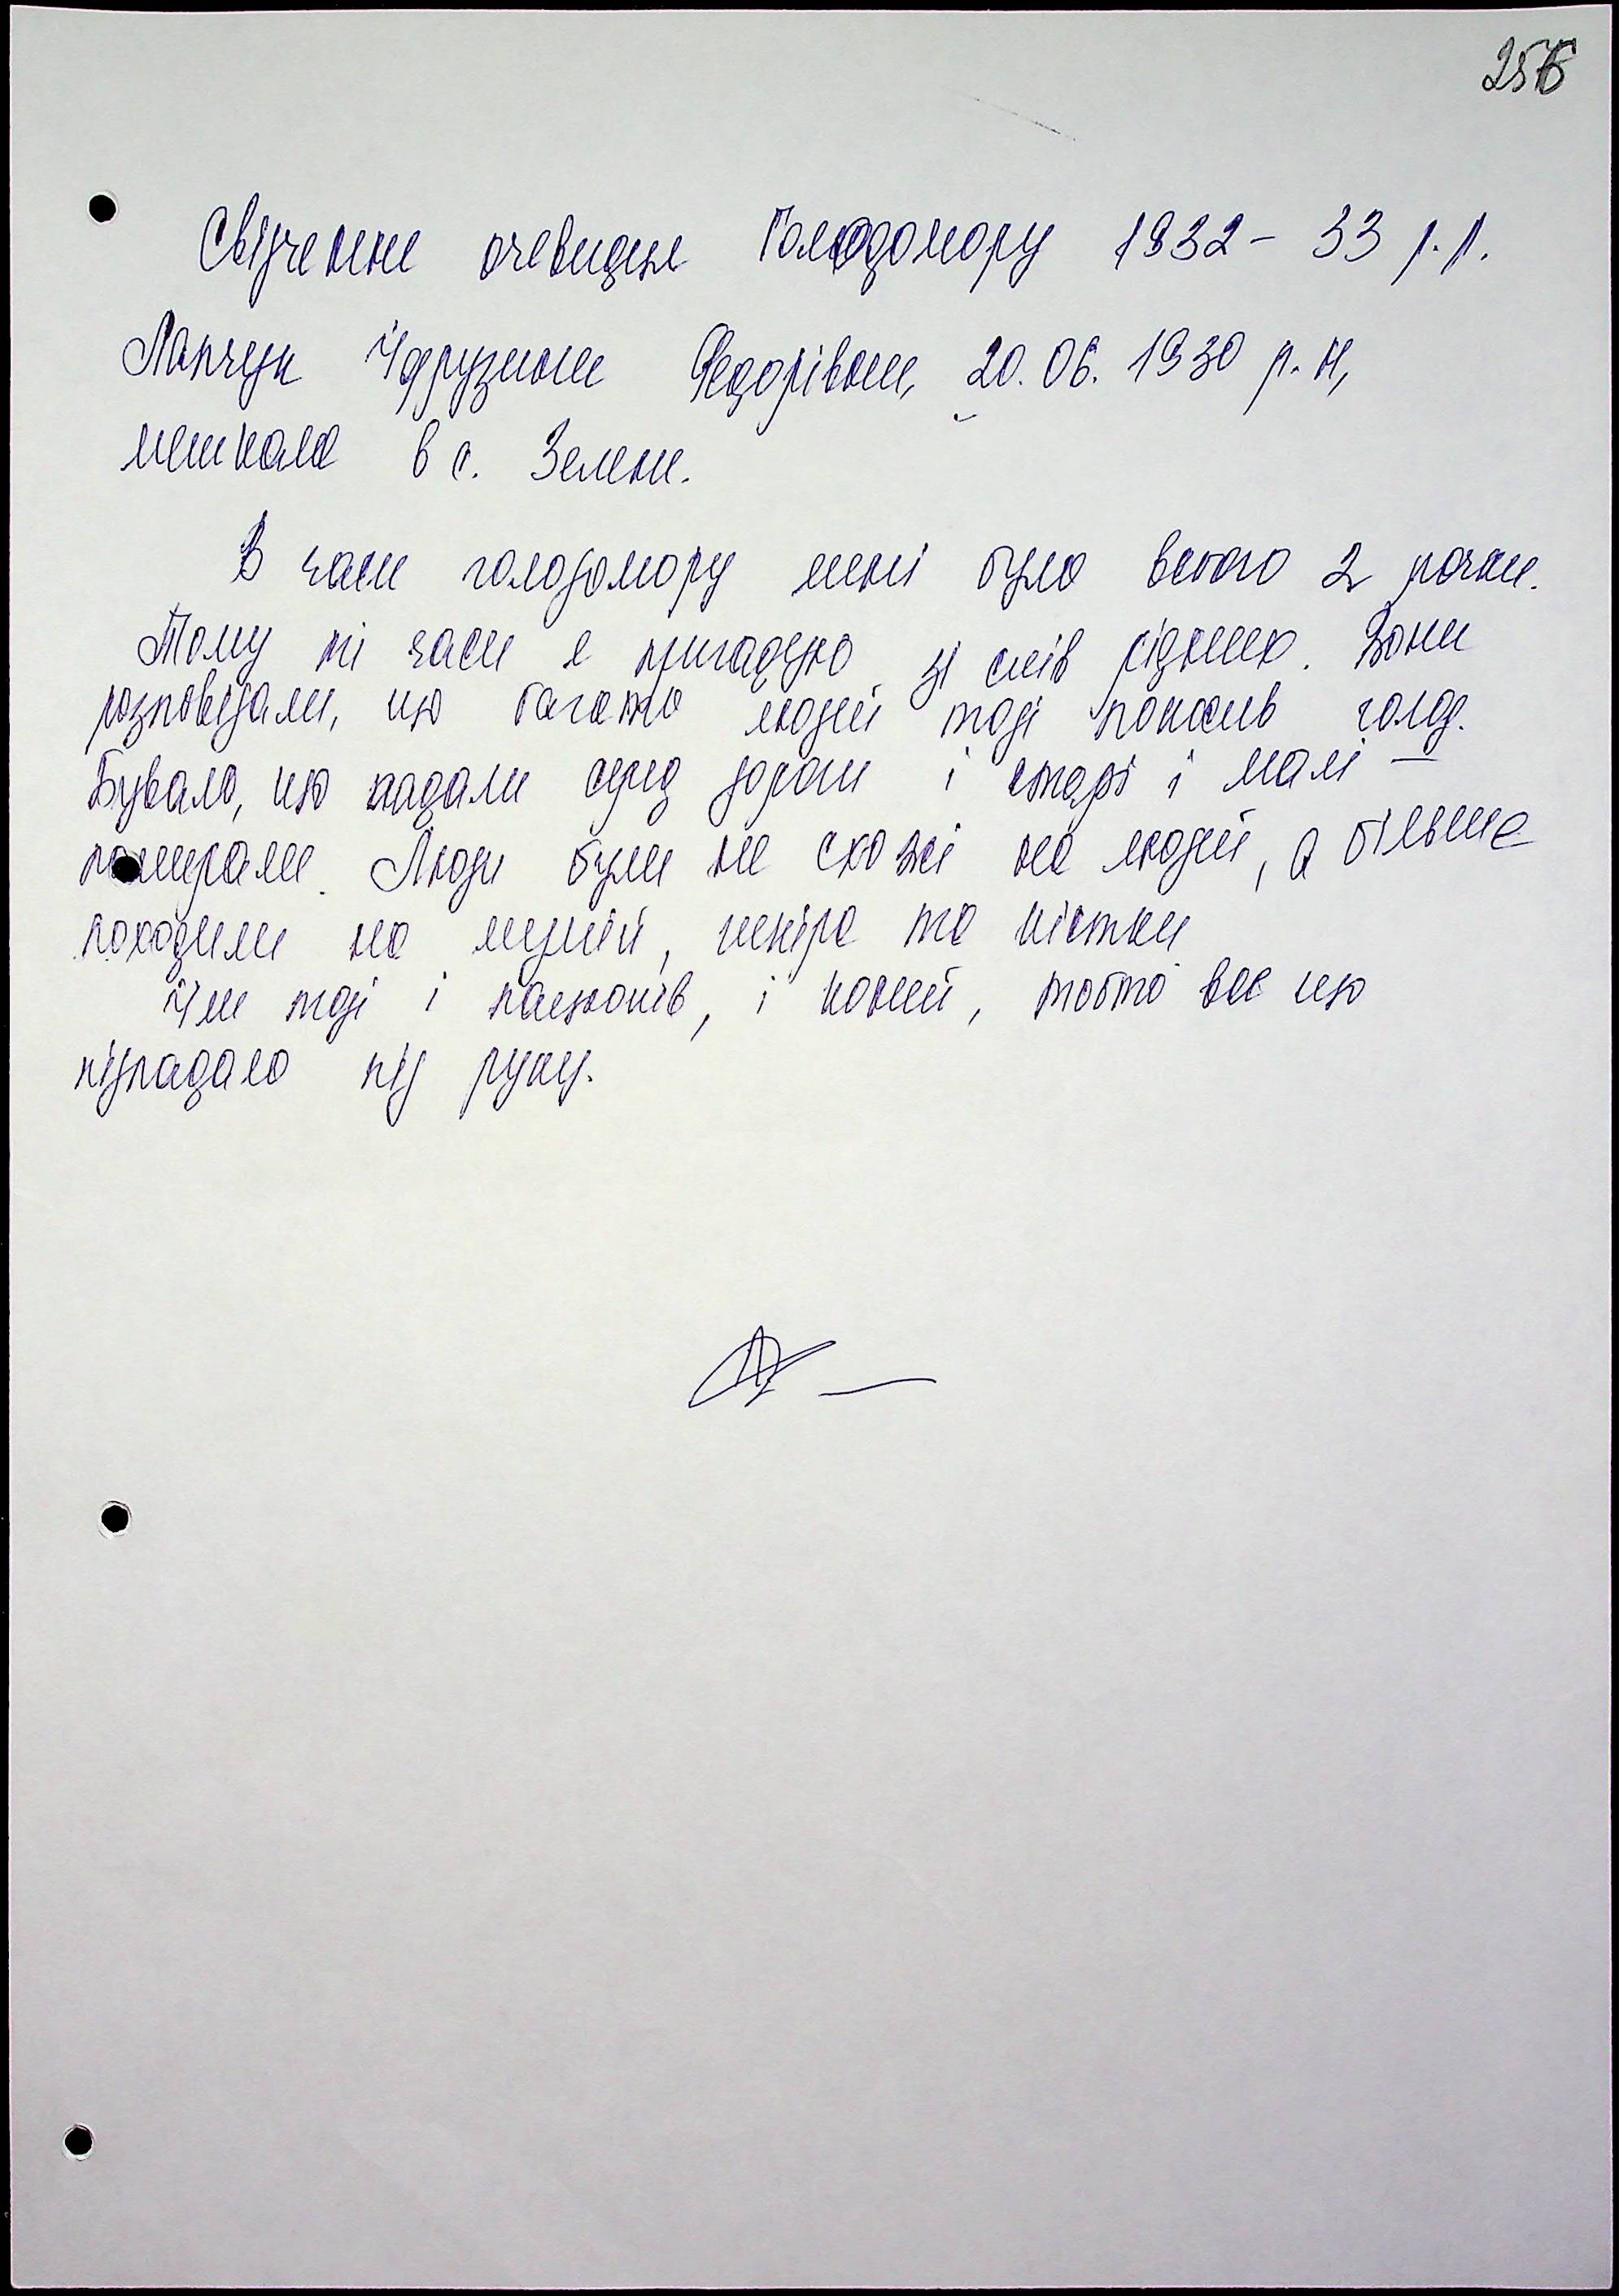 256
Свідчення очевидця Голодомору 1932 - 33 р.р.
Лапчук Їфрузини Федорівни, 20.06.1930 р.н,
мешкала в с. Зелене.
В часи голодомору мені було всього 2 рочки.
Тому ті часи я пригадую зі слів рідних. Вони
розповідали, що багато людей тоді покосив голод.
Бувало, що падали серед дороги і старі і малі —
помирали. Люди були не схожі на людей, а більше
походили на мумій, шкіра та кістки
Їли тоді і пацюків, і коней, тобто все що
підпадало під руку.